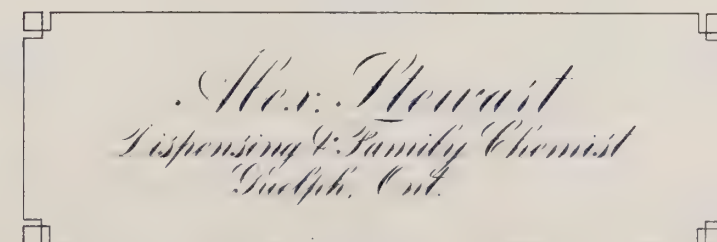 Alex. Stewart
Dispensing & Family Chemist
Guelph, Ont.